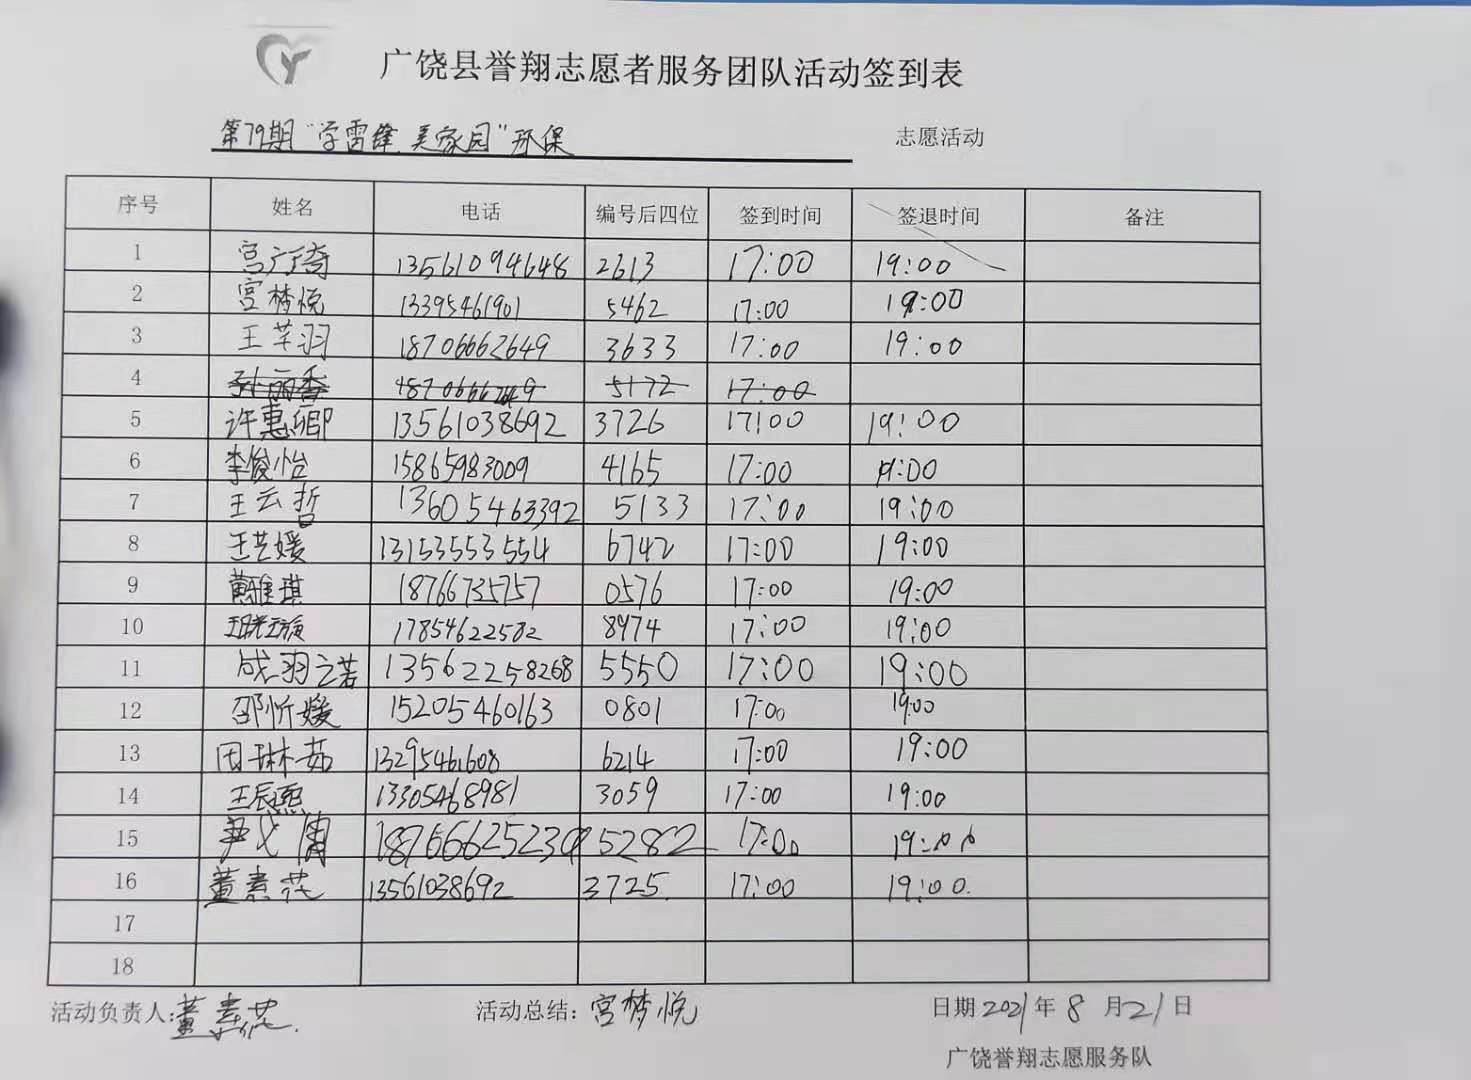 广饶县誉翔志愿者服务团队活动签到表
第79期"学雷锋.美家园"环保 志愿活动
序号 姓名 电话 编号后四位 签到时间 签退时间 备注
1 宫广奇 13561094648 2613 17:00 19:00
2 宫梦悦 13395461901 5462 17:00 19:00
3 王芊羽 18706662649 3633 17:00 19:00
4 孙丽香 5172 17:00
5 许惠卿 13561038692 3726 17:00 19:00
6 李俊怡 15865983009 4165 17:00 19:00
7 王云哲 13605463392 5133 17:00 19:00
8 王艺媛 13153553554 6742 17:00 19:00
9 黄雅琪 18766735757 0576 17:00 19:00
10 17854622582 8974 17:00 19:00
11 成羽之若 13562258268 5550 17:00 19:00
12 邵忻媛 15205460163 0801 17:00 19:00
13 田琳茹 13295461608 6214 17:00 19:00
14 王辰熙 13305468981 3059 17:00 19:00
15 5282 17:00 19:00
16 董素花 13561038692 3725. 17:00 19:00.
17
18
活动负责人:董素花. 活动总结: 宫梦悦 日期 2021年 8 月 21 日
广饶誉翔志愿服务队